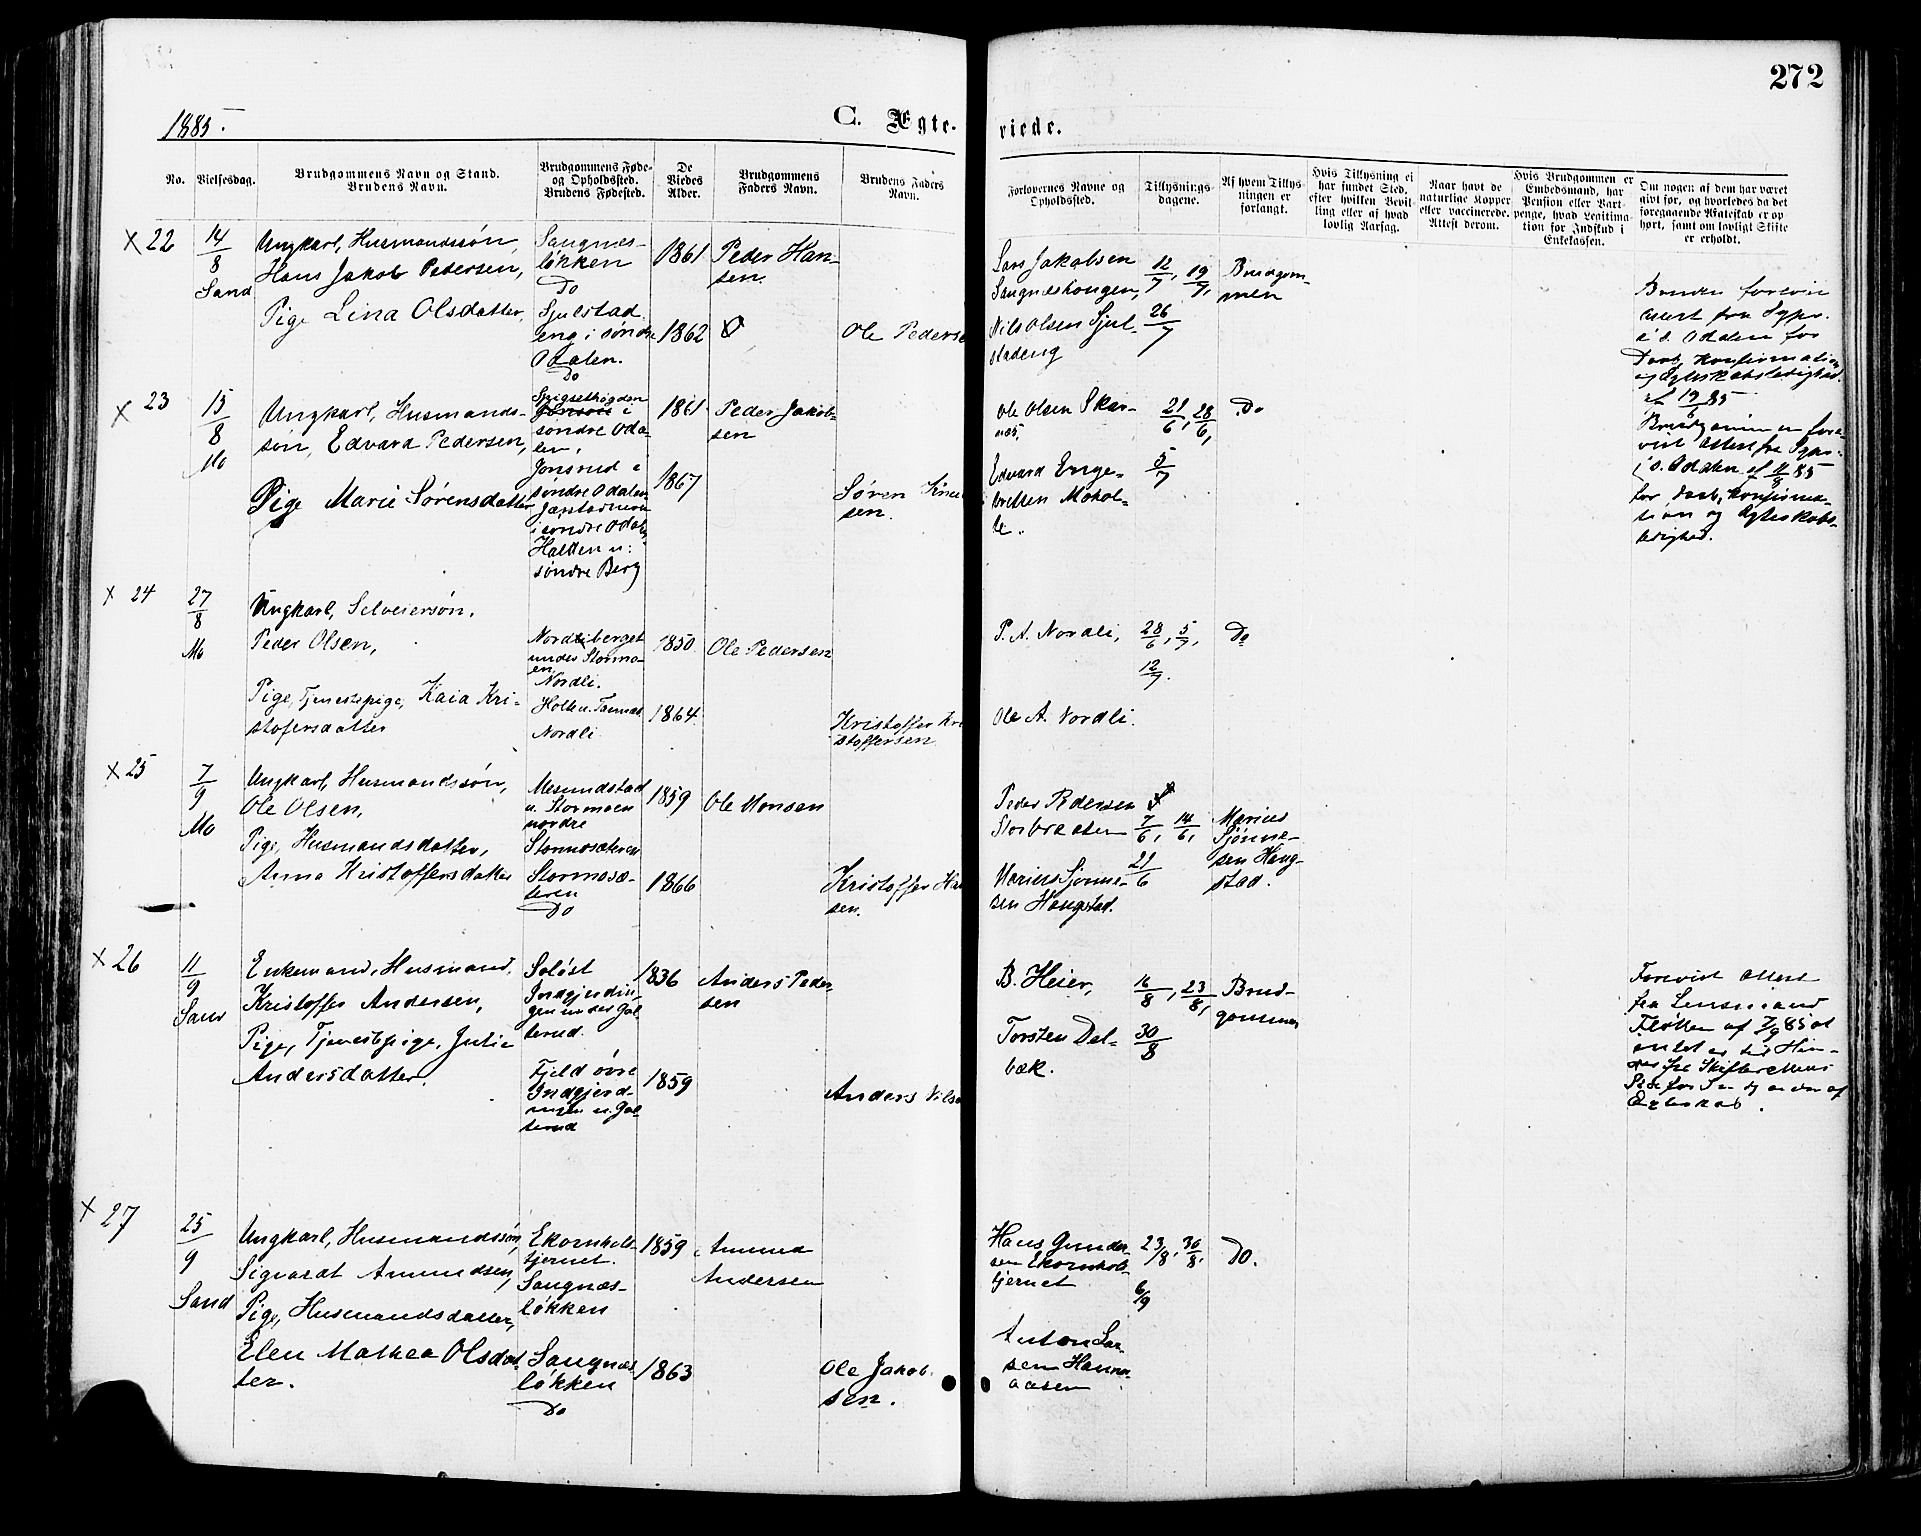 272
1885.
C. Ægte-
viede.
No.
Vielsesdag.
Brudgommens Navn og Stand.
Brudens Navn.
Brudgommens Føde-
og Opholdssted.
Brudens Fødested.
De
Viedes
Alder.
Brudgommens
Faders Navn.
Brudens Faders
Navn.
Forlovernes Navne og
Opholdssted.
Tillysnings-
dagene.
Af hvem Tillys-
ningen er
forlangt.
Hvis Tillysning ei
har fundet Sted,
efter hvilken Bevil-
ling eller af hvad
lovlig Aarsag.
Naar havt de
naturlige Kopper
eller vaccinerede.
Attest derom.
Hvis Brudgommen er
Embedsmand, har
Pension eller Vart-
penge, hvad Legitima-
tion for Indskud i
Enkekassen.
Om nogen af dem har været
givt før, og hvorledes da det
foregaaende Ægteskab er op-
hørt, samt om lovligt Skifte
er erholdt.
x 22
14/8
Sand
Ungkarl, Husmandssøn,
Hans Jakob Pedersen,
Pige Lina Olsdatter,
Sangnæs-
løkken
Do
Sjulstad
eng i søndre
Odalen.
Do
1861
1862
Peder Han-
sen.
Ole Pederse
Lars Jakobsen
Sangnæshougen,
Nils Olsen Sjul-
stadeng
12/7, 19/7,
26/7
Brudgom-
men
Bruden forevist
attest fra Sgpr.
i s. Odalen for
Daab, Konfirmation
og Ægteskabsledighed.
x 23
15/8
Mo
Ungkarl, Husmands-
søn, Edvard Pedersen,
Pige Marie Sørensdatter
søndre Oda-
len,
Jonsrud i
søndre Odalen
i søndre Odal
Halden u:
søndre Berg
1861
1867
Peder Jakob-
sen
Søren
sen.
Ole Olsen Skar-
næs,
Edvard Enge-
bretsen Mohol-
te.
21/6, 28/6,
5/7
Do
Brudgommen fore-
vist Attest fra Sgpr.
i s. Odalen af 11/8 85
for Daab, Konfirma-
tion og Ægteskabs-
ledighed.
x 24
27/8
Mo
Ungkarl, Selveiersøn,
Peder Olsen,
Pige, Tjenestepige, Kaia Kri-
stofersdatter
Nordliberget
under Stormo-
en
Nordli.
Holt u.
Nordli
1850
1864
Ole Pedersen
Kristoffer Kri
stoffersen
P. A. Nordli,
Ole A. Nordli.
28/6, 5/7,
12/7.
Do
x 25
7/9
Mo
Ungkarl, Husmandssøn,
Ole Olsen,
Pige, Husmandsdatter,
Anna Kristoffersdatter
Mesundstad
u. Stormoen
nordre
Stormosæteren
Stormosæ-
teren
Do
1859
1866
Ole Monsen
Kristoffer Ha
sen.
Peder Pedersen
Storbraaten
Marius Sjønne-
sen Haugstad.
7/6, 14/6,
21/6
Marius
Sjønne-
sen Haug-
stad.
x 26
11/9
Sand
Enkemand, Husmand,
Kristoffer Andersen,
Pige, Tjenestepige, Julie
Andersdatter.
Soløst
Indgjerdin-
gen under Gal-
terud.
Fjeld øvre
Indgjerd-
ningen u. Gal-
terud
1836
1859
Anders Peder-
sen
Anders Nilse
B. Heier,
Torsten Dal-
bæk.
16/8, 23/8,
30/8
Brud-
gommen
Forevist Attest
fra Lensmand
Fløtten af 7/9 85 at
intet er til Hin-
Ægteskab.
x 27
25/9
Sand
Ungkarl, Husmandssøn,
Sigvardt Amundsen,
Pige, Husmandsdatter,
Elen Mathea Olsdat-
ter.
Ekornhols-
tjernet.
Sangnæs-
løkken
Sangnæs-
løkken
Do
1859
1863
Amund
Andersen
Ole Jakob-
sen.
Hans Gunder-
sen Ekornhol-
tjernet
Anton Lar-
sen Hanna-
aasen
23/8, 30/8,
6/9
Do.